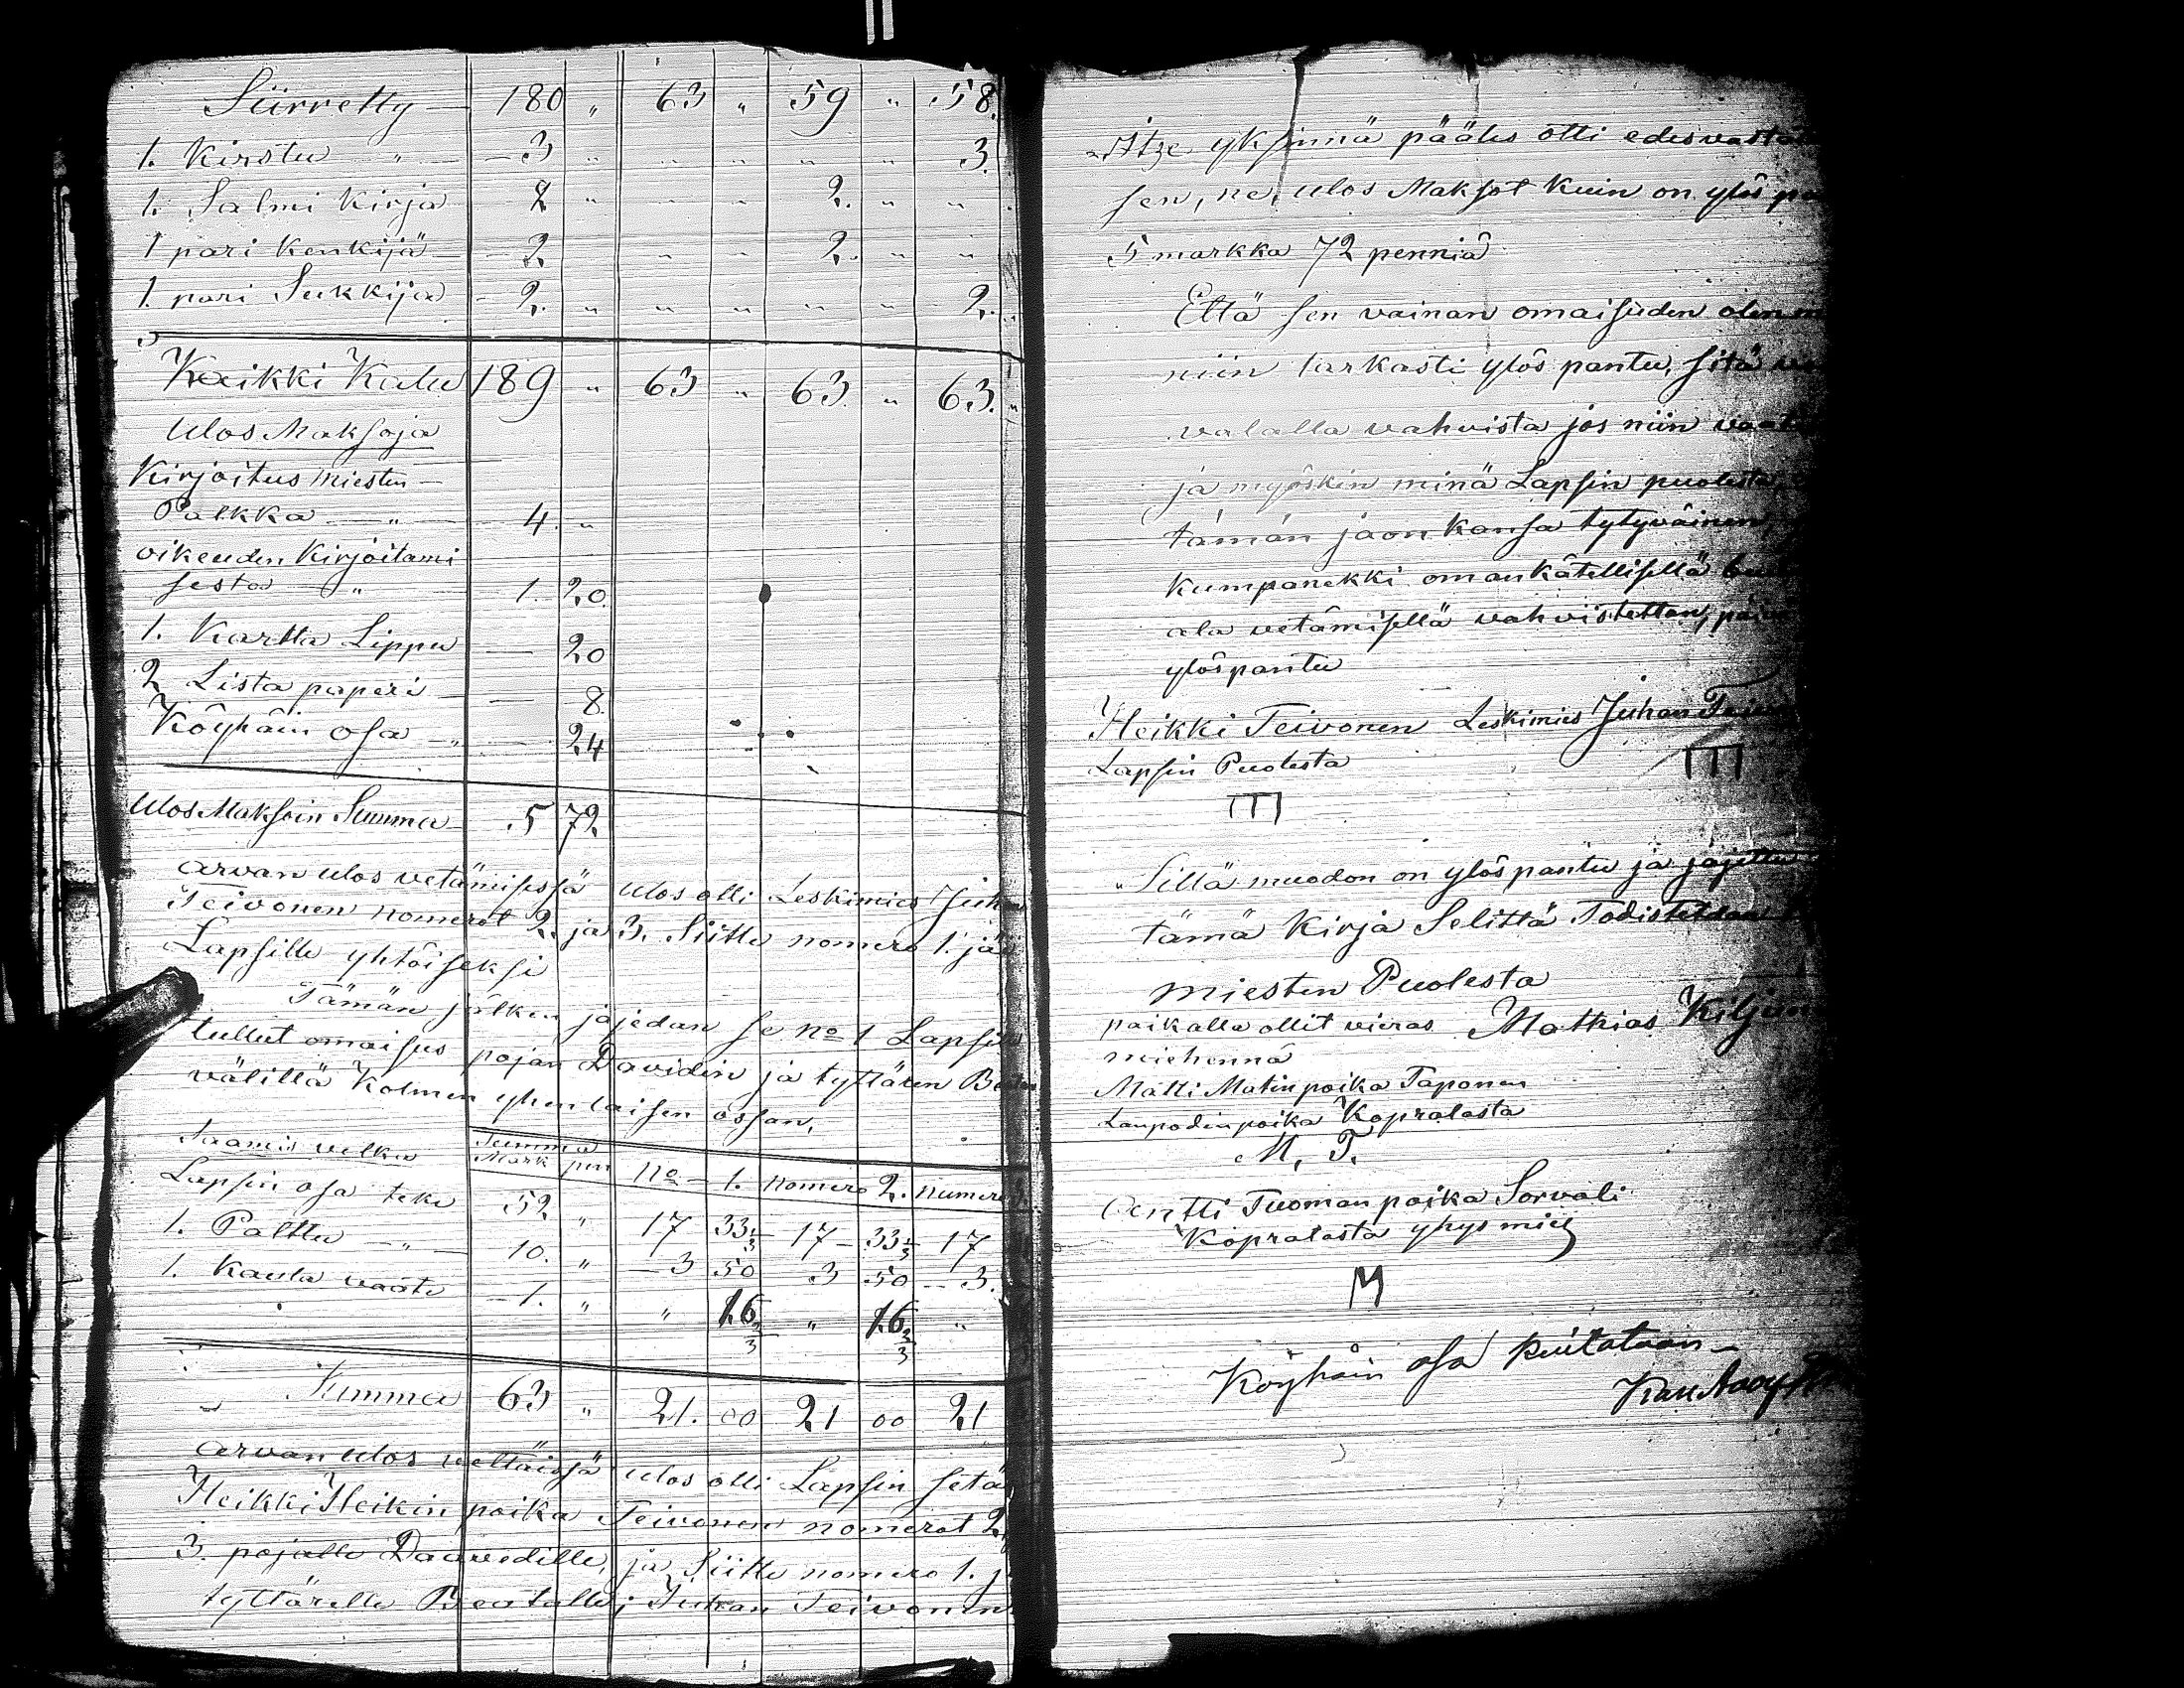 Siirretty — 180 " 63 " 59 " 58.
1. Kirstu " — 3 " " " " " 3.
1. Salmi Kirja 2 " " " 2. " "
1 pari Kenkijä — 2. " " 2. " "
1. pari Sukkija — 2. " " " " " 2. "
Kaikki Kalu 189 " 63 " 63. " 63. "
Ulos Maksoja
Kirjoitus miesten —
Palkka — " — 4. "
oikeuden Kirjoitami
sesta — " 1. 20.
1. Kartta Lippu — 20
2 Lista paperi — 8.
Köyhäin osa — " — 24
Ulos Maksoin Summa 5 72.
Arvan ulos vetämisesä ulos otti Leskimies Juha
Teivonen nomerot 2. ja 3. Siitte nomero 1. jäi
Lapsille yhtöiseksi
Tämän jälken jajedan se No 1 Lapsille
tullut omaisus pojan Davidin ja tyttären Beatan
välillä Kolmen yhenlaisen ossan.
Saamis velka Summa Mark pen No — 1. nomero 2. numero 3.
Lapsin osa teke 52 " 17 33 1/3 17 — 33 1/3 17
1. Palttu — " — 10. " — 3 50 3 50 — 3.
1. Kaula vaate — 1. " " 16 2/3 " 16 2/3 "
Summa 63 " 21. 00 21 00 21
Arvan ulos vettäisä ulos otti Lapsin setä
Heikki Heikin poika Teivonen nomerot 2,
3. pojalle Daavedille, ja Siitte nomero 1. j
tyttärelle Beatalle; Juhan Teivonen
Itze yksinnä pääles otti edesvasta
sen, ne, ulos Maksot Kuin on ylös pa
5 markka 72 penniä
Että sen vainan omaisuden olen
niin tarkasti ylös pantu, sitä
valalla vahvista jos niin vaat
ja myöskin minä Lapsin puolesta,
tämän jaon kansa tytyväinen,
Kumpanekki oman kätellisellä
ala vetämisellä vahvistettan, päi
ylöspantu
Heikki Teivonen Leskimies Juhan Teivo
Lapsin Puolesta
Sillä muodon on ylöspantu ja jajettu
tämä Kirja Selittä Todistetdaan
miesten Puolesta
paikalla ollit vieras Mathias Kilju
miehennä
Matti Matin poika Taponen
poika Kopralasta
M. T.
Antti Tuoman poika Sorvali
Kopralasta yhys mies
M
Köyhäin osa kuitataan —